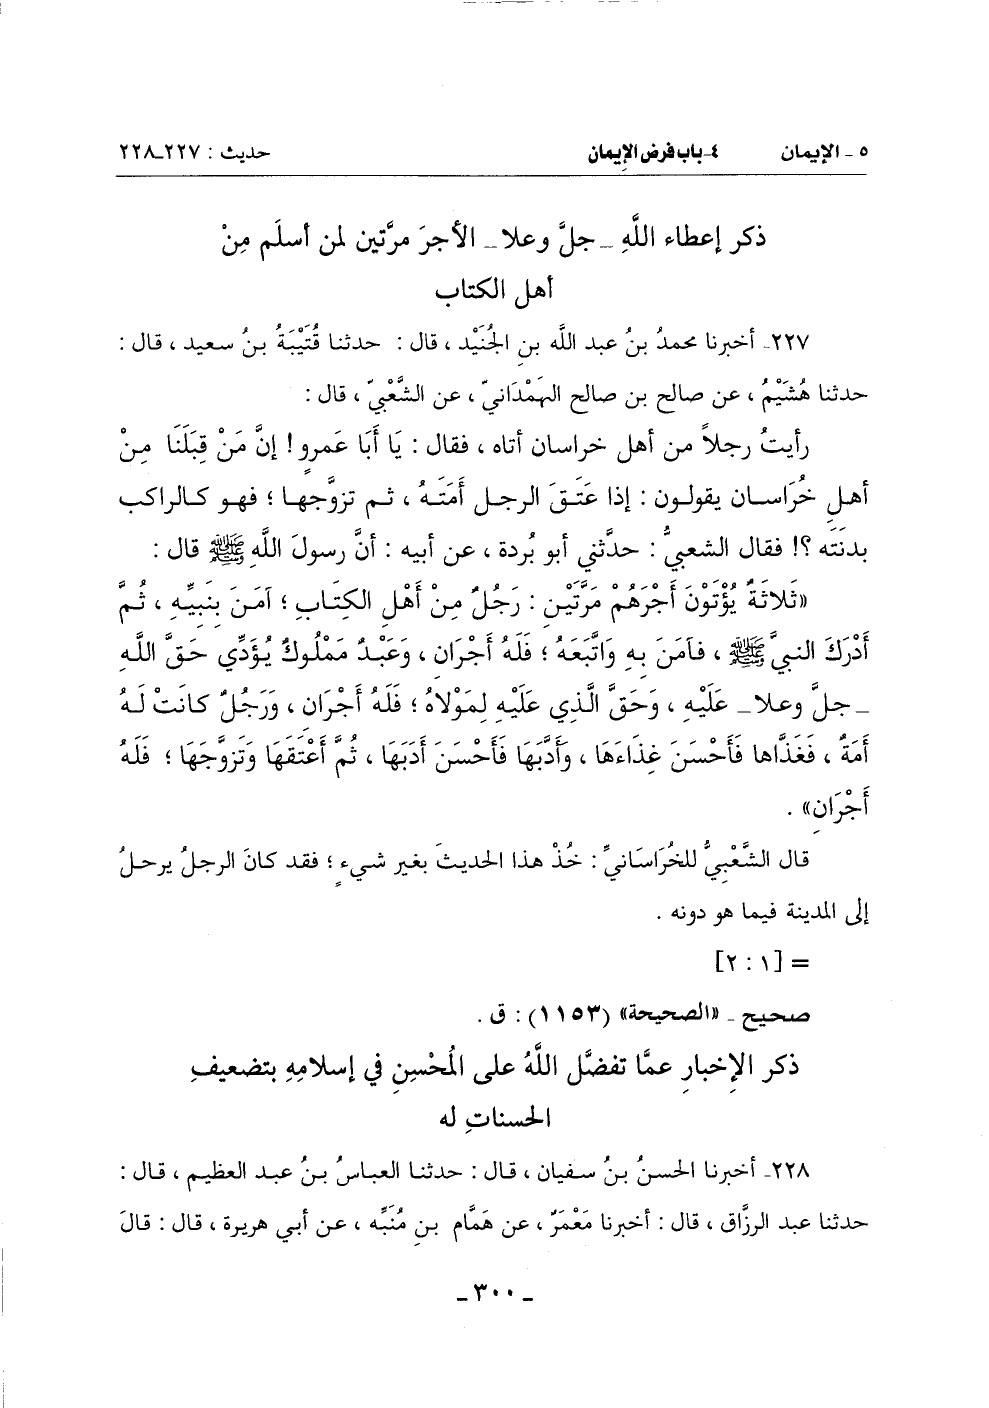 ٥ ـ الإيمان ٤ـ باب فرض الإيمان حديث : ٢٢٧ـ٢٢٨
ذكر إعطاء اللَّهِ ـ جلَّ وعلا ـ الأجرَ مرَّتين لمن أسلَم مِنْ
أهل الكتاب
٢٢٧ـ أخبرنا محمدُ بنُ عبد اللَّه بنِ الجُنَيْد ، قال : حدثنا قُتَيْبَةُ بنُ سعيد ، قال :
حدثنا هُشَيْمُ ، عن صالح بن صالح الهَمْدَانيّ ، عن الشَّعْبيّ ، قال :
رأيتُ رجلاً من أهل خراسان أتاه ، فقال : يَا أَبَا عَمرٍو ! إنَّ مَنْ قِبَلَنَا مِنْ
أهلِ خُرَاسان يقولون : إذا عَتَقَ الرجل أَمَتَهُ ، ثم تزوَّجها ؛ فهو كالراكب
بدنَتَه ؟! فقال الشعبيُّ : حدَّثني أبو بُردة ، عن أبيه : أنَّ رسولَ اللَّهِ ﷺ قال :
«ثَلاثَةٌ يُؤْتَوْنَ أَجْرَهُمْ مَرَّتَيْنِ : رَجُلٌ مِنْ أَهْلِ الكِتَابِ ؛ آمَنَ بِنَبِيِّهِ ، ثُمَّ
أَدْرَكَ النبيَّ ﷺ ، فآمَنَ بِهِ وَاتَّبَعَهُ ؛ فَلَهُ أَجْرَانِ ، وَعَبْدٌ مَمْلُوكٌ يُؤَدِّي حَقَّ اللَّهِ
ـ جلَّ وعلا ـ عَلَيْهِ ، وَحَقَّ الَّذي عَلَيْهِ لِمَوْلاهُ ؛ فَلَهُ أَجْرَانِ ، وَرَجُلٌ كانَتْ لَهُ
أَمَةٌ ، فَغَذَّاها فَأَحْسَنَ غِذَاءَهَا ، وَأَدَّبَهَا فَأَحْسَنَ أَدَبَهَا ، ثُمَّ أَعْتَقَهَا وَتَزوَّجَهَا ؛ فَلَهُ
أَجْرَانِ» .
قال الشَّعْبِيُّ للخُرَاسَانيِّ : خُذْ هذا الحديثَ بغير شيءٍ ؛ فقد كانَ الرجلُ يرحلُ
إلى المدينة فيما هو دونه .
= [١ : ٢]
صحيح ـ «الصحيحة» (١١٥٣) : ق .
ذكر الإخبارِ عمَّا تفضَّل اللَّهُ على المُحْسِنِ في إسلامِهِ بتضعيفِ
الحسناتِ له
٢٢٨ـ أخبرنا الحسنُ بنُ سفيان ، قال : حدثنا العباسُ بنُ عبد العظيم ، قال :
حدثنا عبد الرزَّاق ، قال : أخبرنا مَعْمَرٌ ، عن هَمَّام بنِ مُنَبِّه ، عن أبي هريرة ، قال : قالَ
ـ ٣٠٠ ـ